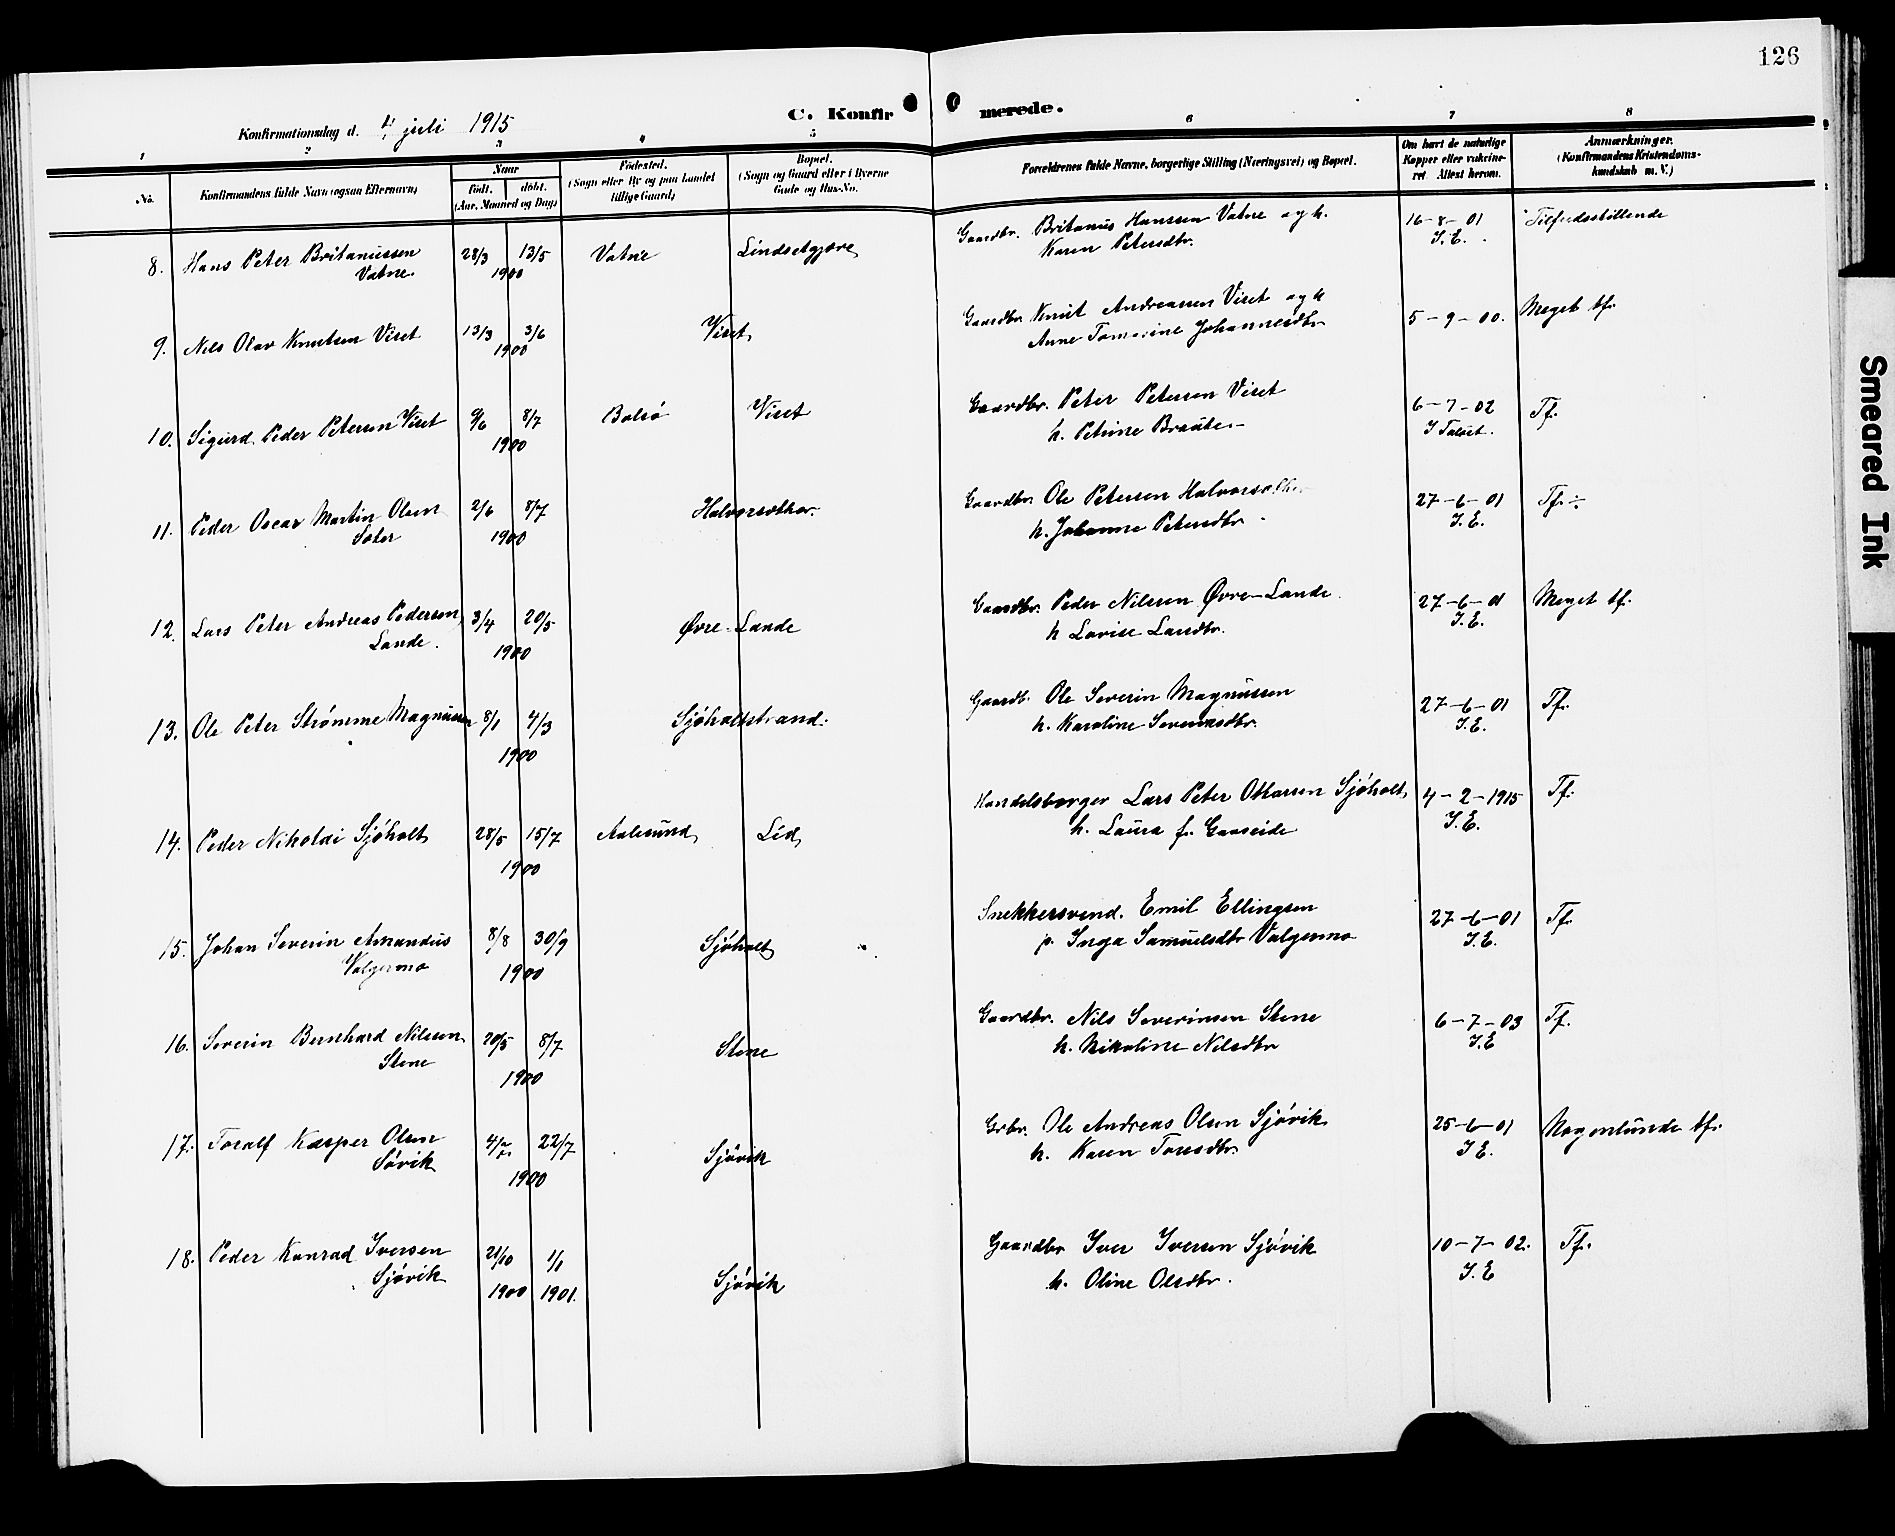 126
C. Konfirmerede.
Konfirmationsdag d. 4 juli 1915
1 2 3 4 5 6 7 8
No.
Konfirmandens fulde Navn (ogsaa Efternavn)
Naar
født. døbt.
(Aar, Maaned og Dag)
Fødested.
(Sogn eller By og paa Landet
tillige Gaard)
Bopæl.
(Sogn og Gaard eller i Byerne
Gade og Hus-No.
Forældrenes fulde Navne, borgerlige Stilling (Næringsvei) og Bopæl.
Om havt de naturlige
Kopper eller vakcine-
ret Attest herom.
Anmærkninger.
(Konfirmandens Kristendoms-
kundskab m. V.)
8. Hans Peter Britanussen 28/3 13/5 Vatne Lindsetgjære Gaardbr. Britanus Hanssen Vatne og h. 16-8-01 Tilfredsstillende
Vatne. 1900 Karen Petersdtr. I.E.
9. Nils Olav Knutsen Viset 13/3 3/6 Viset Gaardbr. Knut Andreassen Viset og h 5-9-00. Meget tf.
1900 Anne Tomasine Johannesdtr
10. Sigurd Peder Petersen Viset 9/6 8/7 Bolsø Viset Gaardbr. Peter Petersen Viset 6-7-02 Tf.
1900 h. Petrine I
11. Peder Oscar Martin Olsen 2/6 8/7 Halvorsæther. Gaardbr. Ole Petersen 27-6-01 Tf. ÷
Sæter 1900 h. Johanne Petersdtr I.E.
12. Lars Peter Andreas Pedersen 3/4 20/5 Øvre-Lande Gaardbr. Peder Nilssen Øvre-Lande 27-6-01 Meget tf.
Lande. 1900 h Lovise Larsdtr. I.E.
13. Ole Peter Strømme Magnussen 8/1 4/3 Sjøholtstrand. Gaardb. Ole Severin Magnussen 27-6-01 Tf.
1900 h. Karoline I.E.
14. Peder Nikolai Sjøholt 28/5 15/7 Aalesund Lid Handelsborger Lars Peter Ottarsen Sjøholt 4-2-1915 Tf.
1900 h. Laura f. Gaaseide I.E.
15. Johan Severin Amandus 8/8 30/9 Sjøholt Snekkersvend. Emil Ellingsen 27-6-01 Tf.
Valgermo 1900 p. Inga Samuelsdtr Valgermo I.E.
16. Severin Bernhard Nilssen 20/5 8/7 Stene Gaardbr. Nils Severinsen Stene 6-7-03 Tf.
Stene 1900 h. Nikoline Nilsdtr I.E
17. Toralf Kasper Olsen 4/7. 22/7 Sjøvik Grbr. Ole Andreas Olsen Sjøvik 25-6-01 Nogenlunde tf.
Søvik 1900 h. Karen Toresdtr I E.
18. Peder Konrad Iversen 21/10 1/1 Sjøvik Gaardbr Iver Iversen Sjøvik 10-7-02. Tf.
Sjøvik 1900 1901. h. Oline Olsdtr. I.E
Smeared Ink